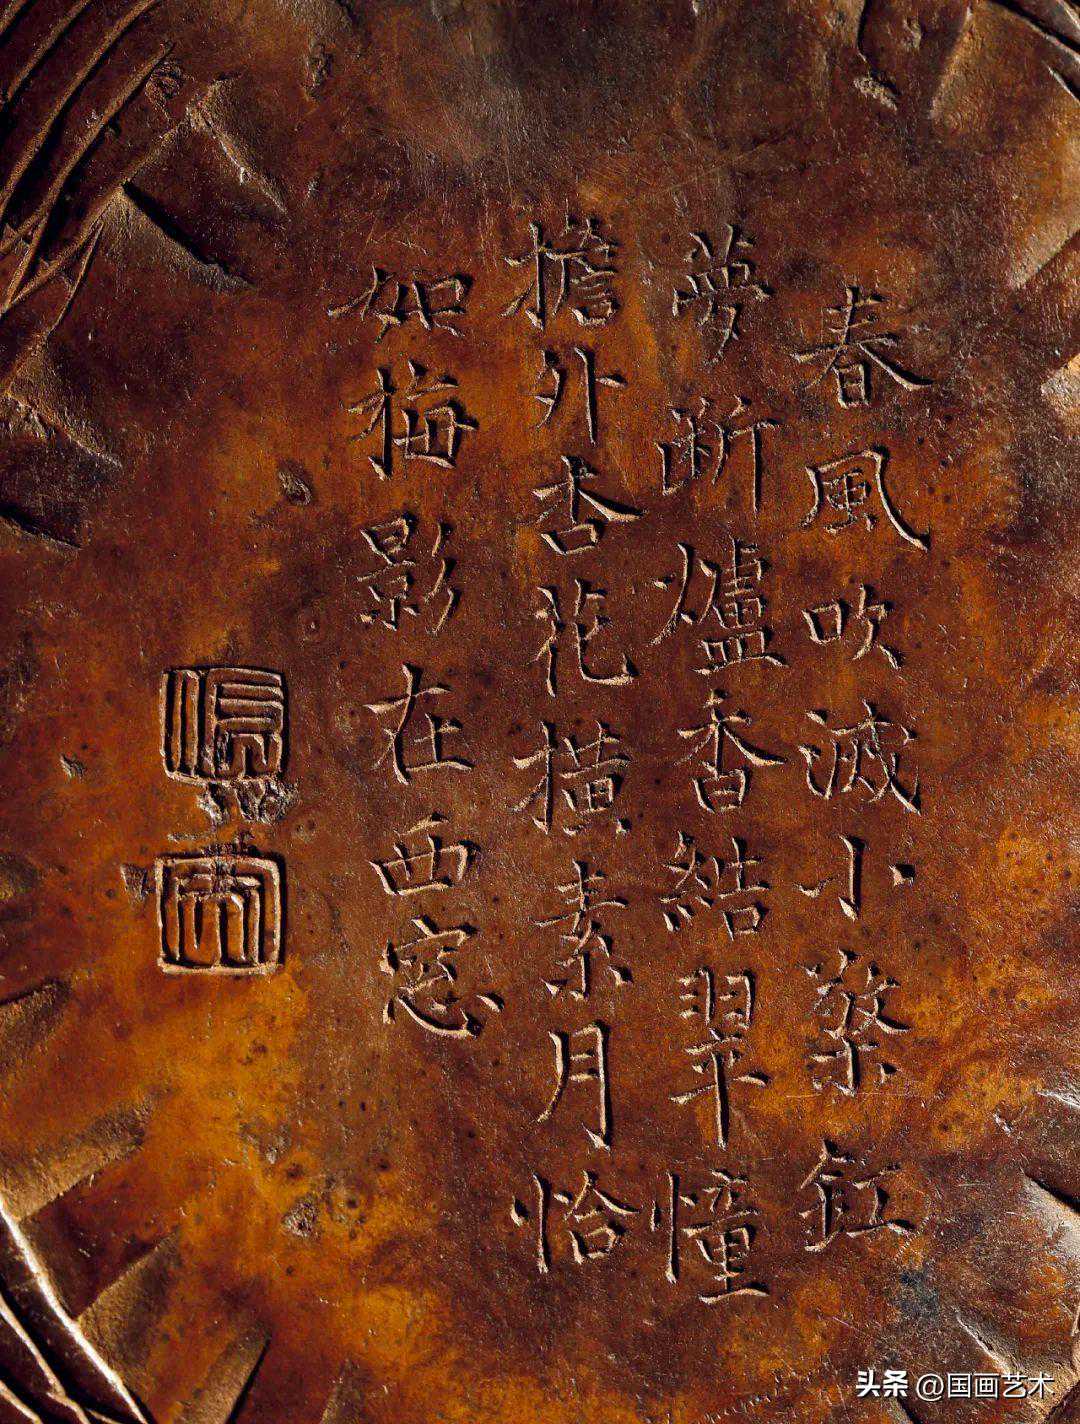 春風吹滅小檠釭
夢断爐香結翠憧
檐外杏花橫素月恰
如梅影在西窓
头条 @国画艺术